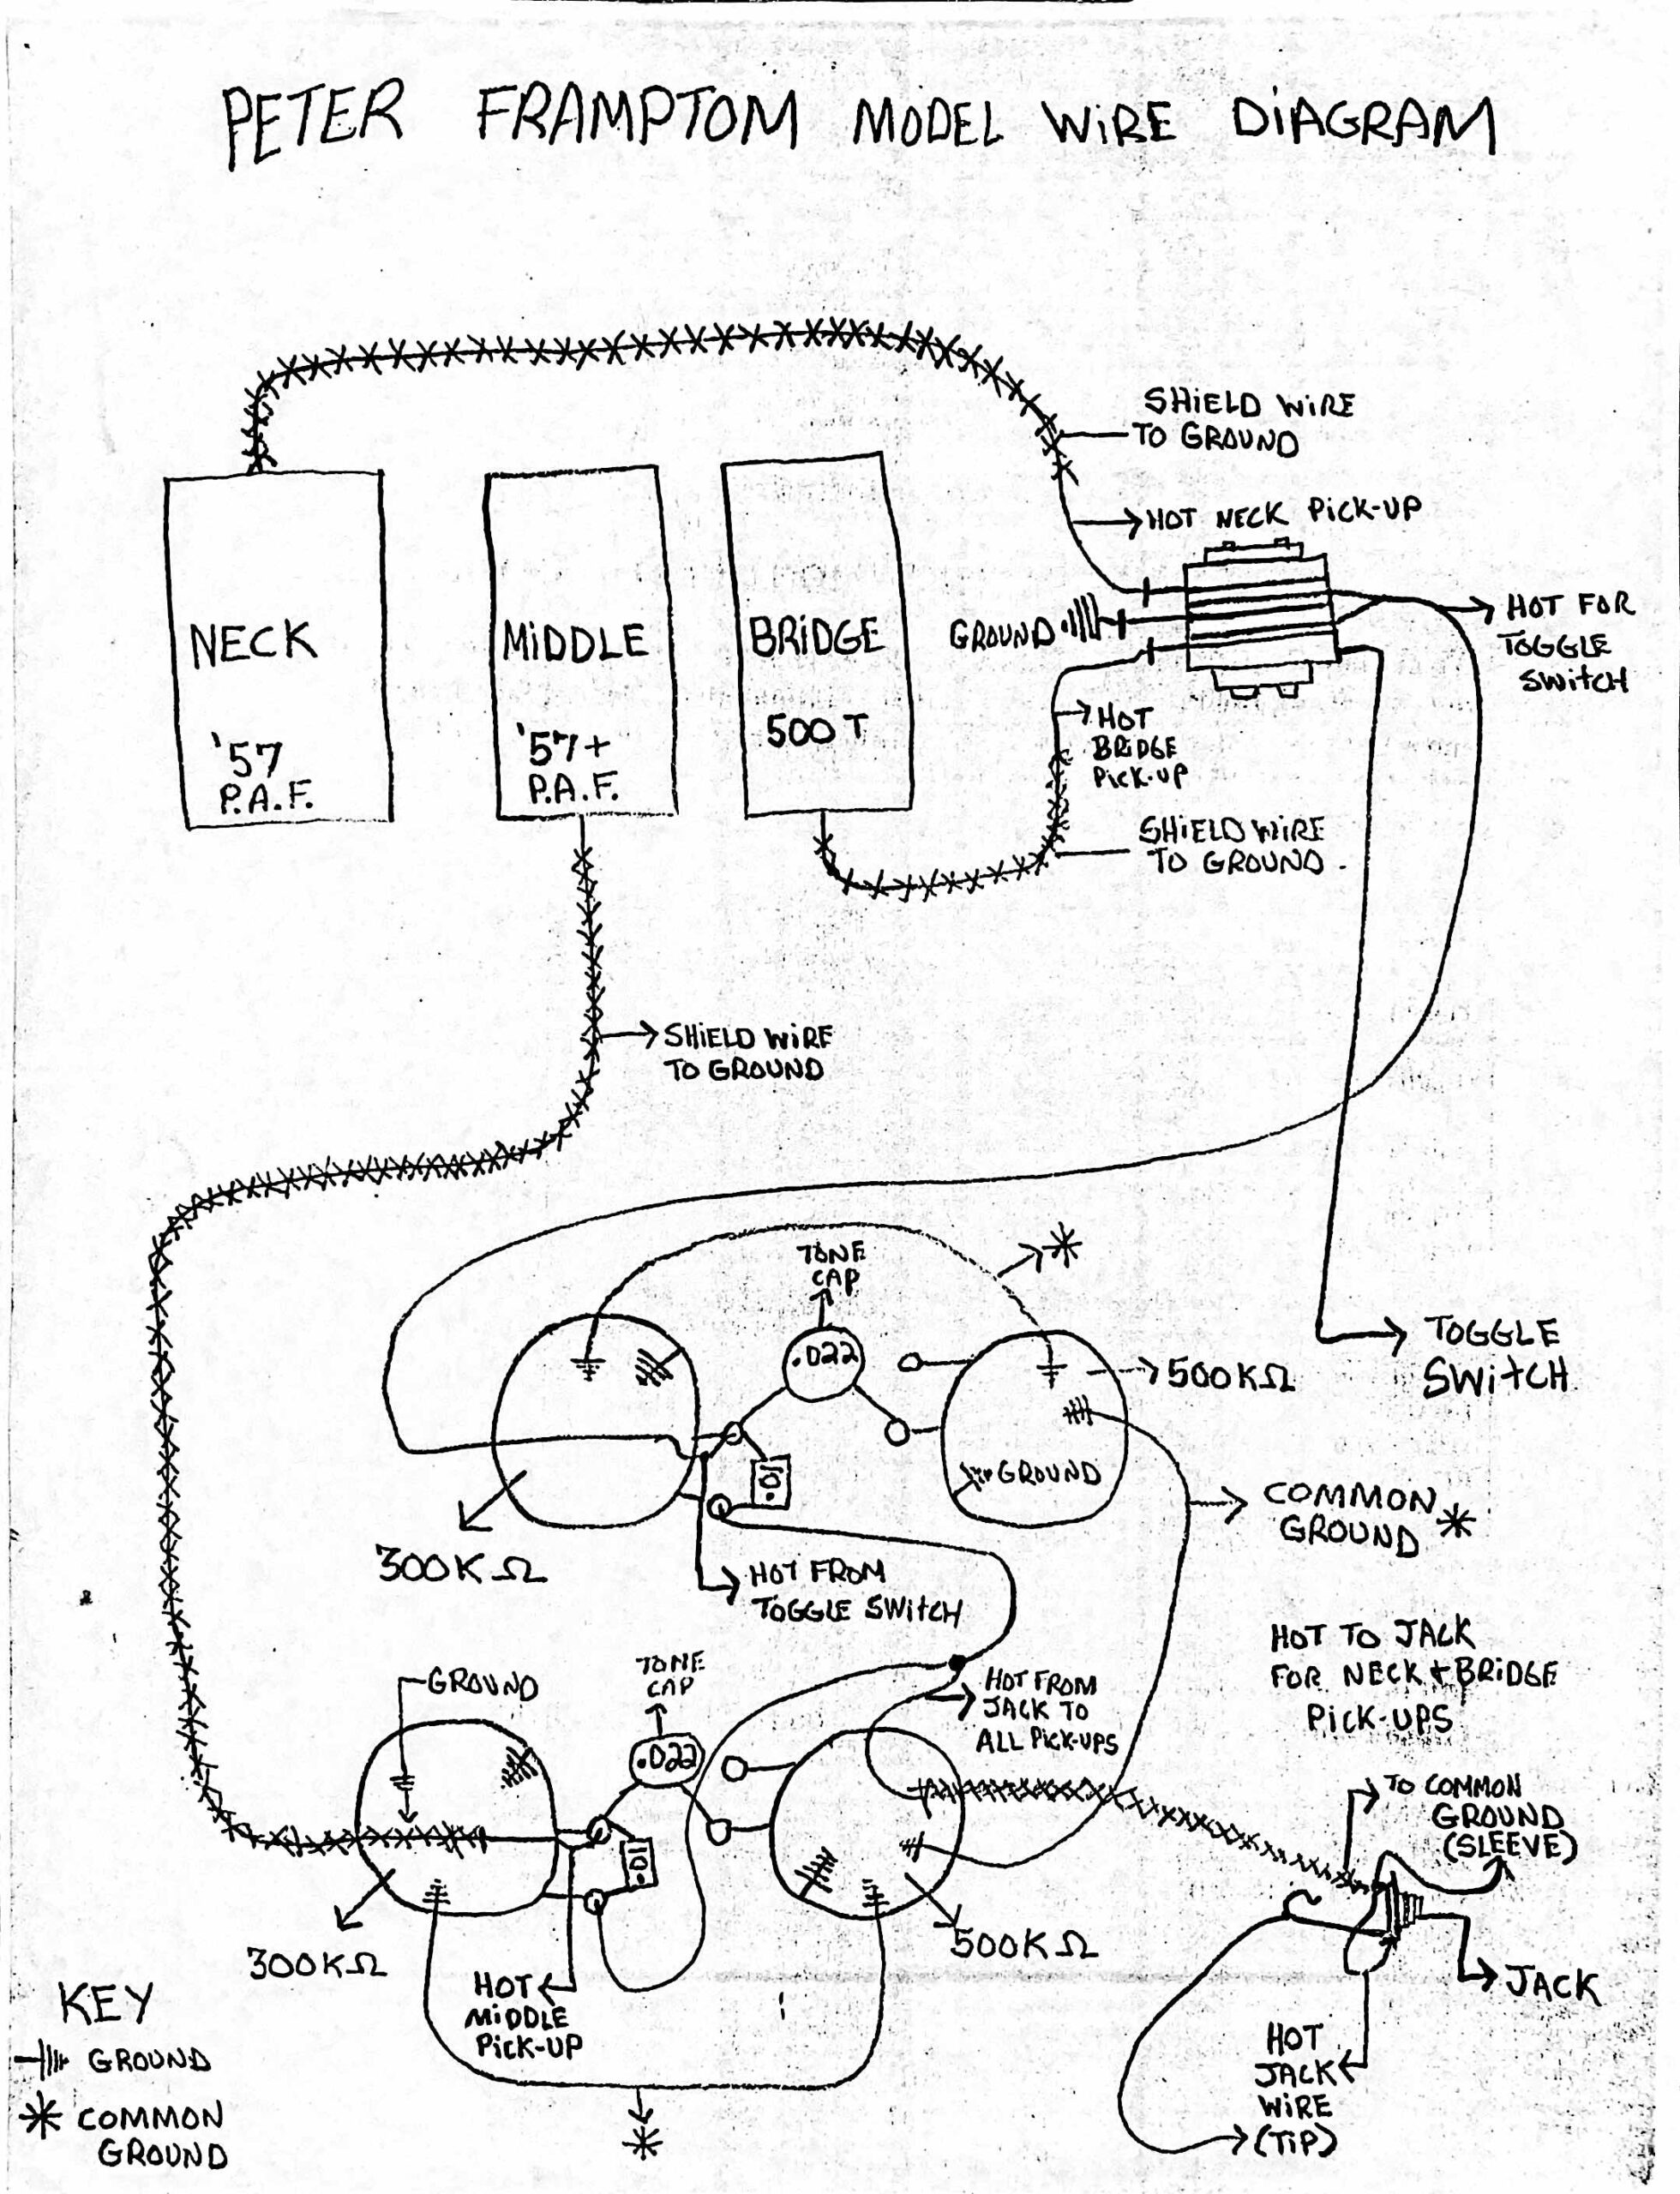 PETER FRAMPTOM MODEL WiRE DiAGRAM
SHiELD WiRE
TO GROUND
HOT NECK PiCK-UP
NECK
'57
P.A.F.
MiDDLE
'57+
P.A.F.
BRiDGE
500 T
GROUND
HOT FOR
TOGGLE
SWitCH
HOT
BRiDGE
PiCK-UP
SHiELD WiRE
TO GROUND
SHiELD WiRE
TO GROUND
TONE
CAP
.022
500KΩ
TOGGLE
SWitCH
GROUND
COMMON
GROUND
300KΩ
HOT FROM
TOGGLE SWitCH
HOT TO JACK
FOR NECK + BRiDGE
PiCK-UPS
GROUND
TONE
CAP
.022
HOT FROM
JACK TO
ALL PiCK-UPS
TO COMMON
GROUND
(SLEEVE)
300KΩ
500KΩ
HOT
MiDDLE
PiCK-UP
JACK
HOT
JACK
WiRE
(TiP)
KEY
GROUND
COMMON
GROUND